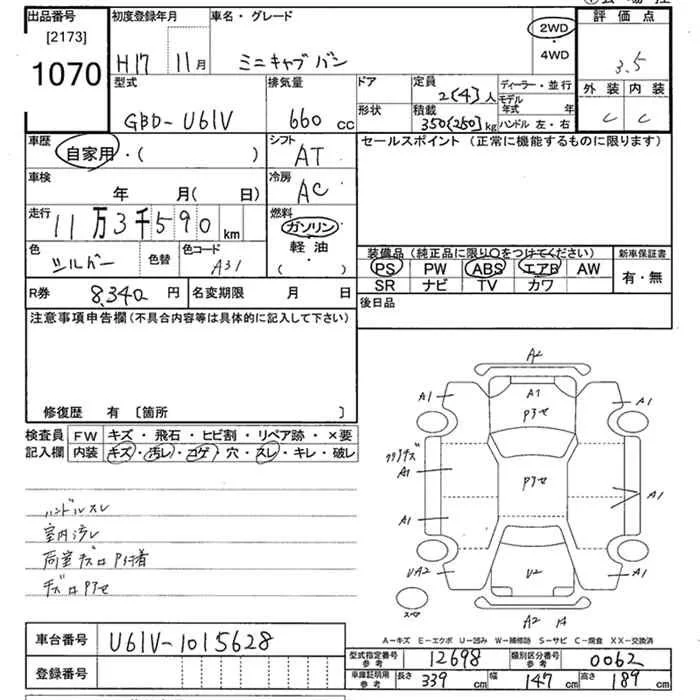 出品番号
[2173]
1070
初度登録年月
H17 11月
車名・グレード
ミニキャブバン
2WD
・
4WD
評価点
3.5
外装 内装
C C
型式
GBD-U61V
排気量
660 cc
ドア
形状
定員
2[4]人
積載
350[250]kg
ディーラー・並行
モデル年式 年
ハンドル 左・右
車歴
自家用・( )
シフト
AT
セールスポイント(正常に機能するものに限ります)
車検
年 月( 日)
冷房
AC
走行
11万3千590km
燃料
ガソリン
軽油
( ・ )
色
シルバー
色替
色コード
A31
装備品(純正品に限り○をつけてください)
PS PW ABS エアB AW
SR ナビ TV カワ
新車保証書
有・無
R券 8,340円
名変期限 月 日
後日品
注意事項申告欄(不具合内容等は具体的に記入して下さい)
修復歴 有 〔箇所 〕
検査員 FW キズ・飛石・ヒビ割・リペア跡・×要
記入欄 内装 キズ・汚レ・コゲ・穴・スレ・キレ・破レ
ハンドルスレ
室内汚レ
荷室キズロ
キズロPアセ
A2
A1 A1 A1
Pアセ
A1 Pアセ A1
A1
UA2 U2 A1
スペア
A2
A-キズ E-エクボ U-凹み W-補修跡 S-サビ C-腐食 XX-交換済
車台番号 U61V-1015628
登録番号
型式指定番号参考 12698 類別区分番号参考 0062
車庫証明用参考 長さ 339cm 幅 147cm 高さ 189cm